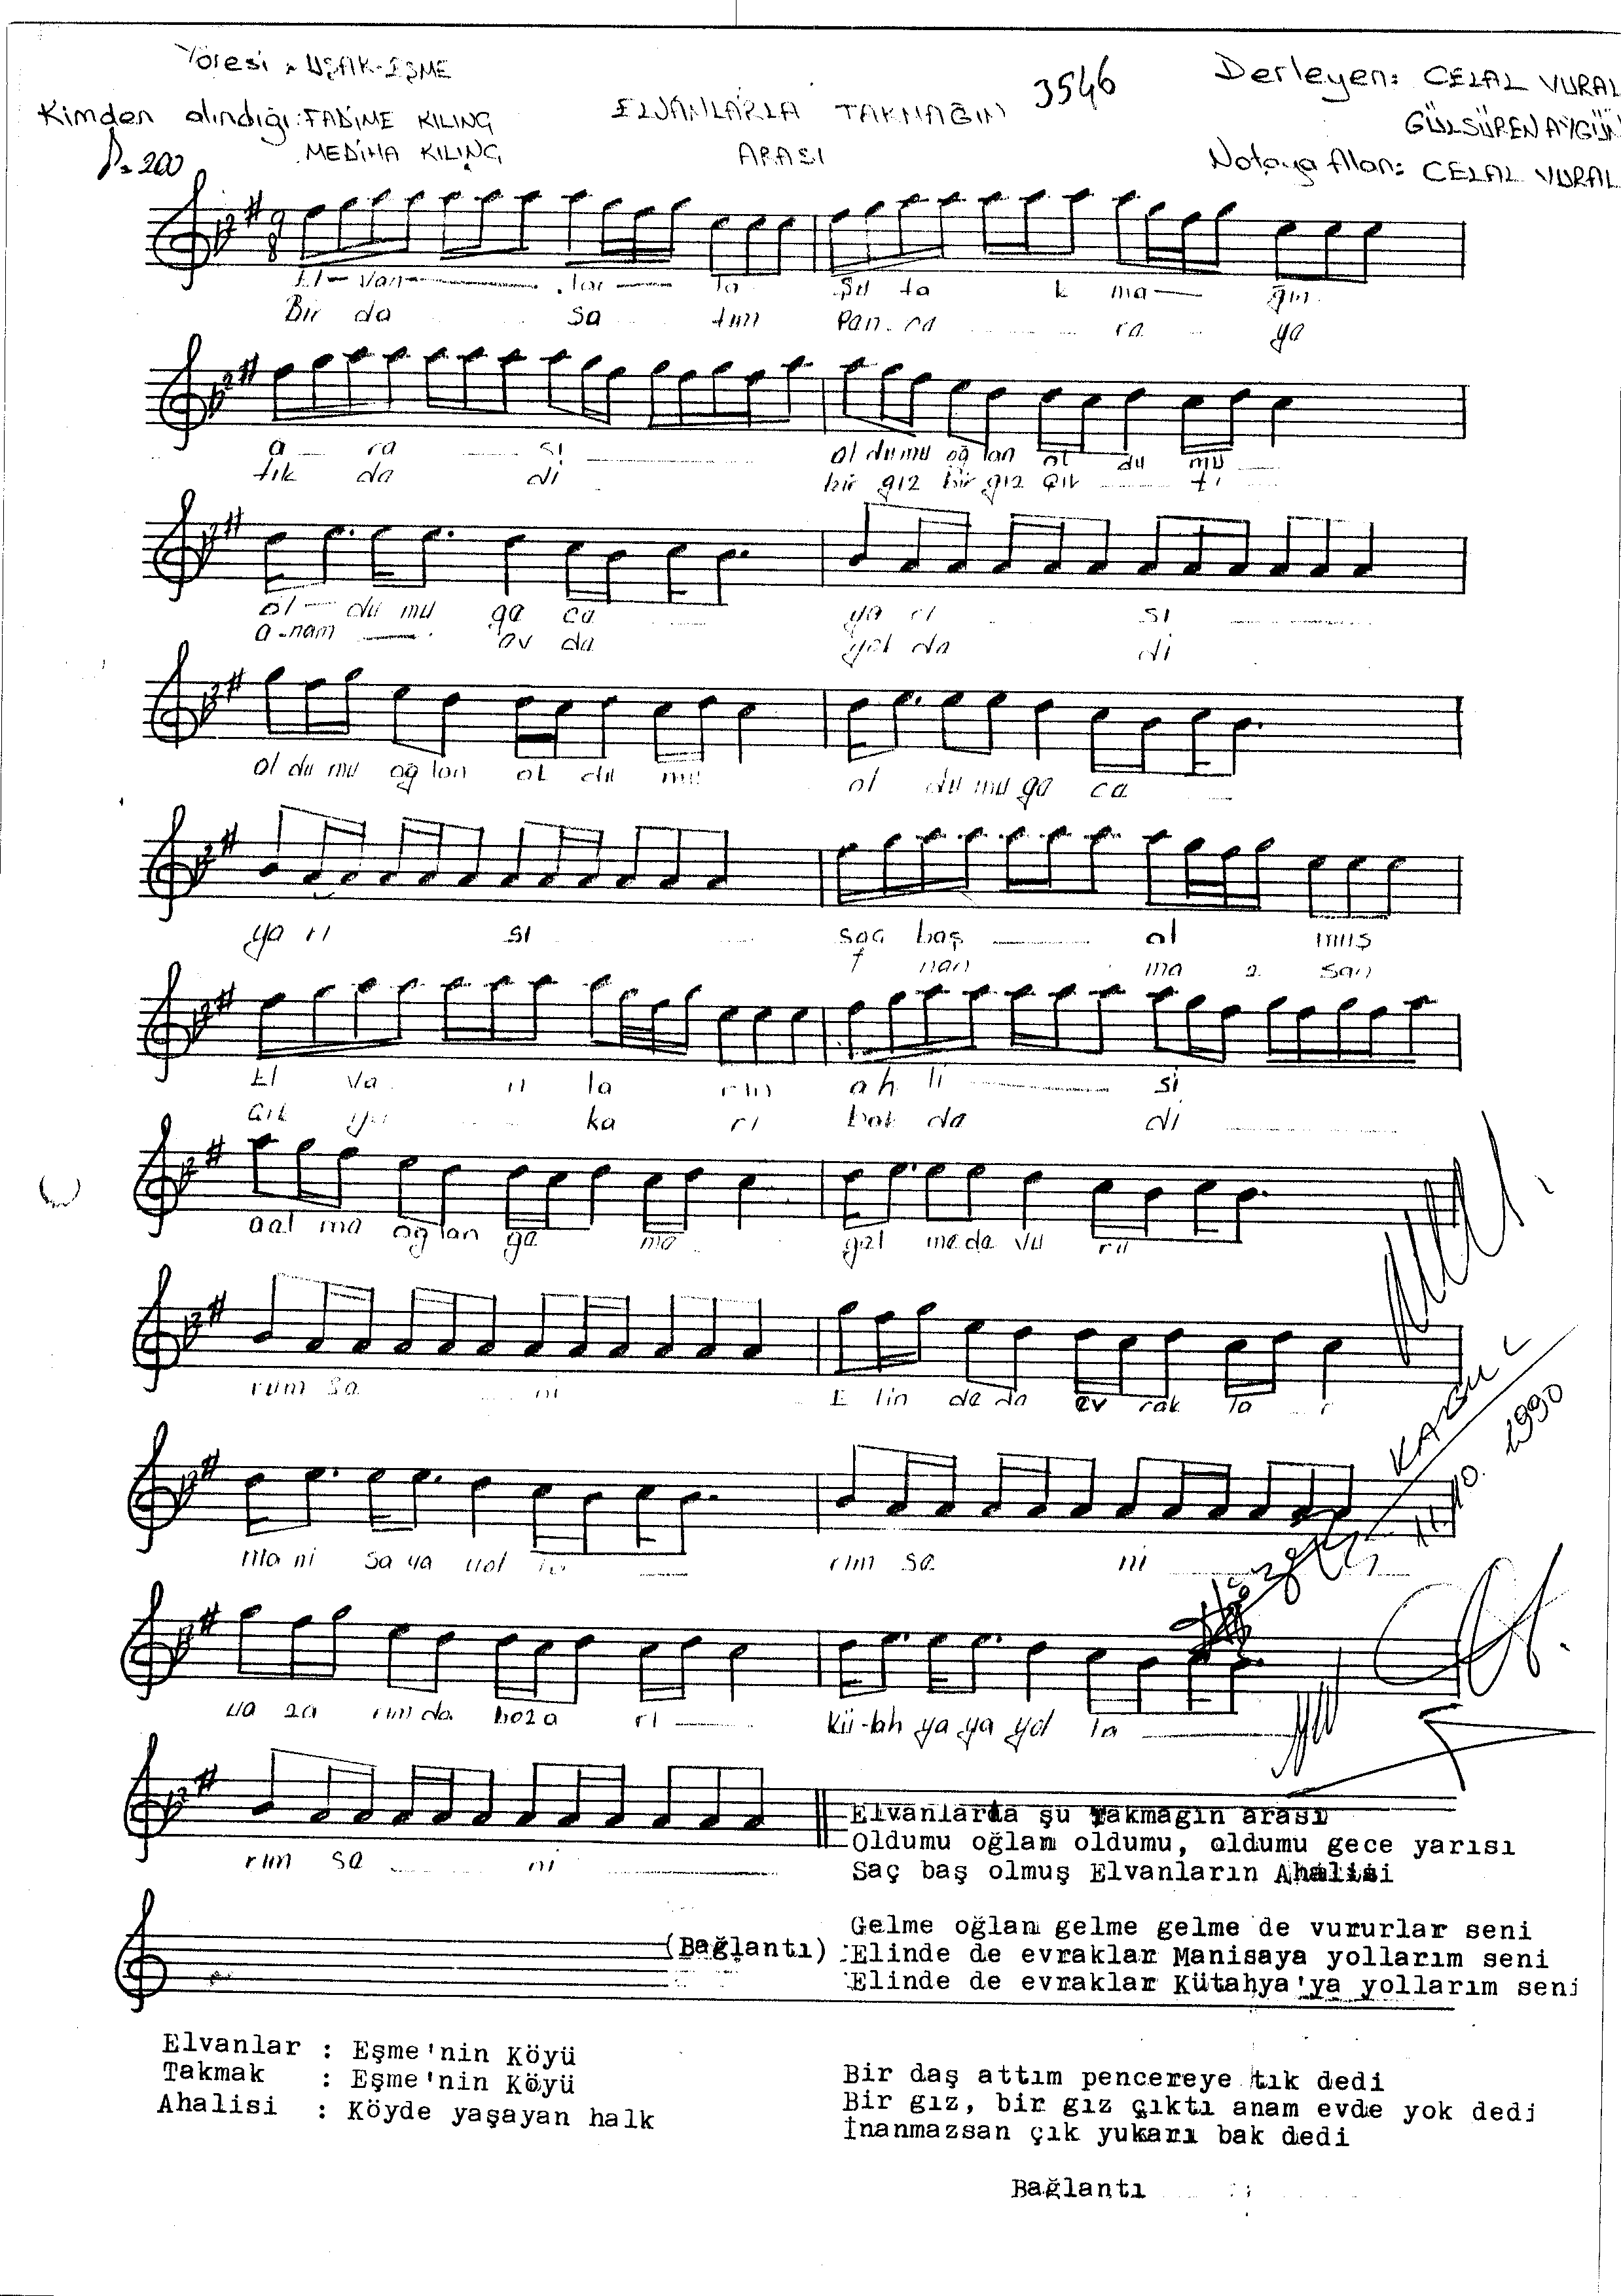 Yöresi : UŞAK-EŞME
Kimden alındığı: FADİME KILINÇ
MEDİHA KILINÇ
♪=200
ELVANLARLA TAKMAĞIN
ARASI
3546
Derleyen: CELAL VURAL
GÜLSÜREN AYGÜN
Notaya Alan: CELAL VURAL
El - van lar la şu ta k ma ğın
Bir da sa tım Pan ca ra ya
a ra sı ol du mu oğ lan ol du mu
tık da di bir gız bir gız çık tı
ol du mu ga ca ya rı sı
a-nam ev da yok da di
ol du mu oğ lan ol du mu ol du mu ga ca
ya rı sı saç baş ol muş
nan ma z san
El va n la rın ah li si
çık yu ka rı bak da di
gal ma oğ lan ga ma gal ma da vu ru
rum sa ni E lin de da ev rak la r
ma ni sa ya yol la rım sa ni
ya za rım da boza rı Kü-tah ya ya yol la
rım sa ni
KABUL
11.10.1990
Elvanlarda şu Takmağın arası
Oldumu oğlan oldumu, oldumu gece yarısı
Saç baş olmuş Elvanların Ahalisi
Gelme oğlan gelme gelme de vururlar seni
(Bağlantı) :Elinde de evraklar Manisaya yollarım seni
Elinde de evraklar Kütahya'ya yollarım seni
Elvanlar : Eşme'nin Köyü
Takmak : Eşme'nin Köyü
Ahalisi : Köyde yaşayan halk
Bir daş attım pencereye tık dedi
Bir gız, bir gız çıktı anam evde yok dedi
İnanmazsan çık yukarı bak dedi
Bağlantı